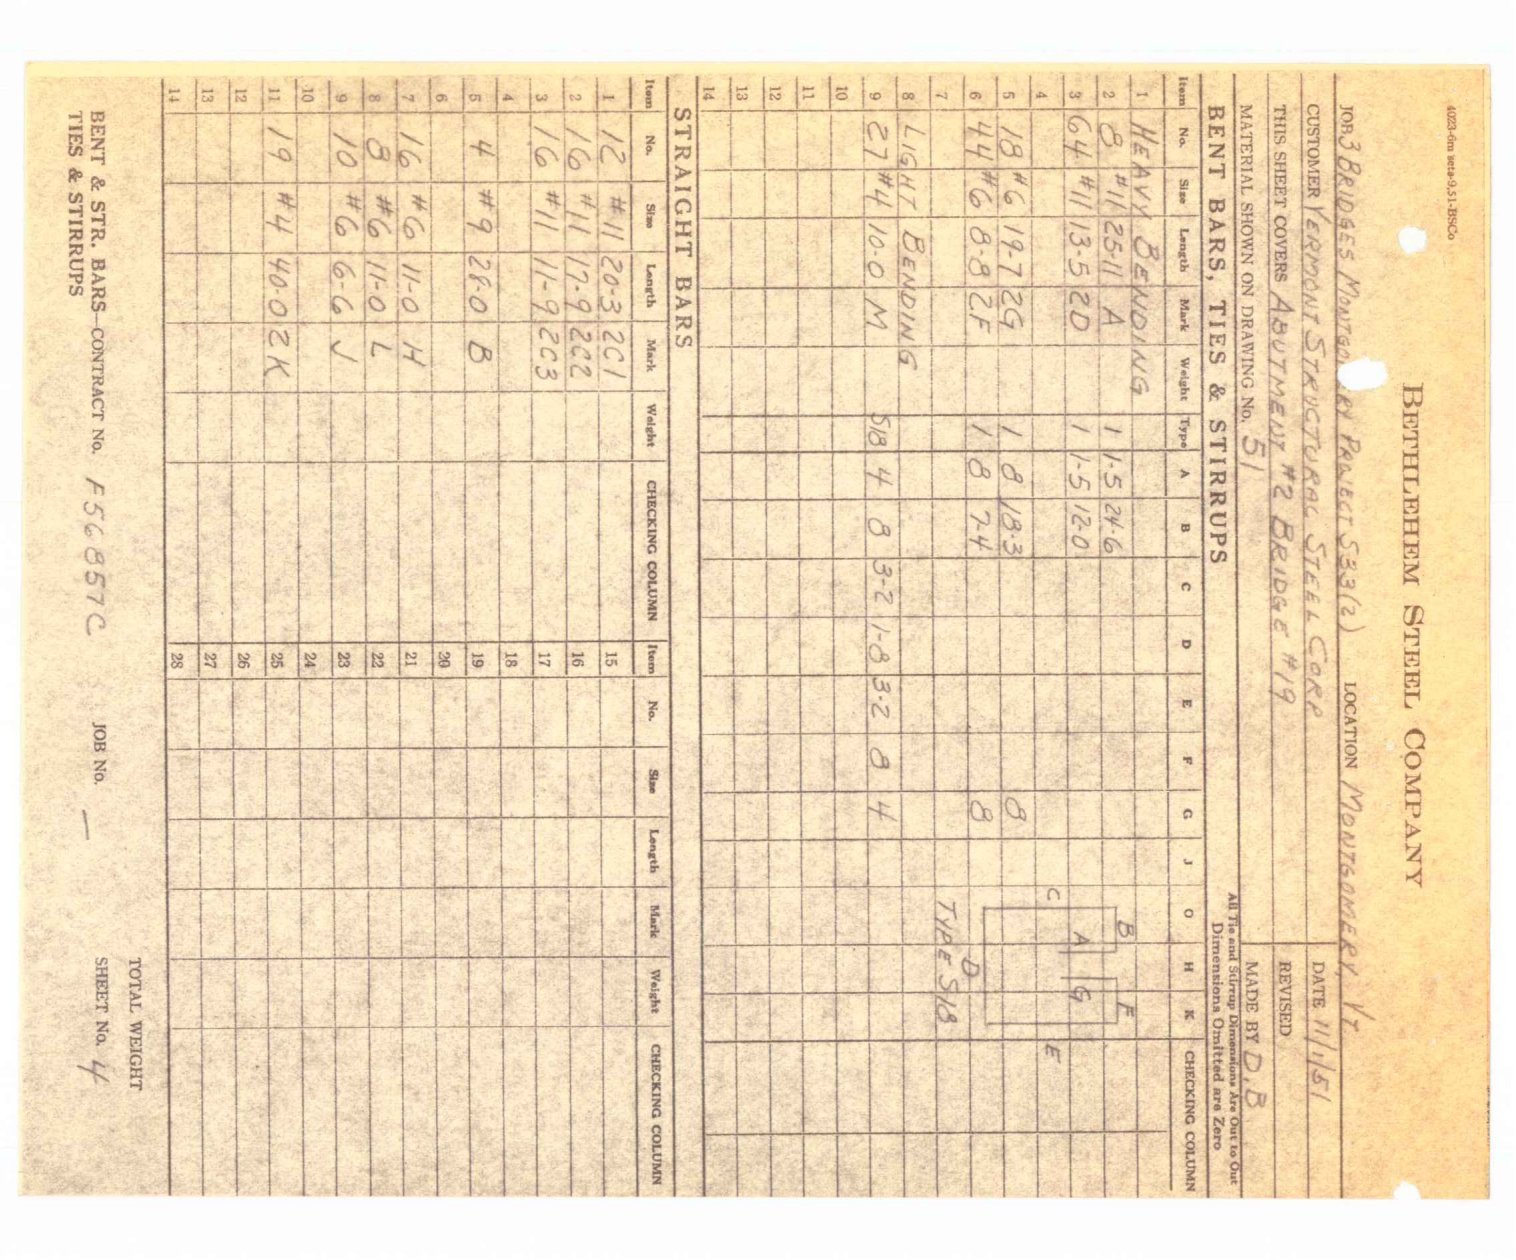 4023-6m sets-9.51-BSCo
BETHLEHEM STEEL COMPANY
JOB 3 BRIDGES MONTGO RY PROJECT S33(2) LOCATION MONTGOMERY, VT.
CUSTOMER VERMONT STRUCTURAL STEEL CORP DATE 11/1/51
THIS SHEET COVERS ABUTMENT #2 BRIDGE #19 REVISED
MATERIAL SHOWN ON DRAWING No. 51 MADE BY D.B
BENT BARS, TIES & STIRRUPS All Tie and Stirrup Dimensions Are Out to Out
Dimensions Omitted are Zero
Item No. Size Length Mark Weight Type A B C D E F G J O H K CHECKING COLUMN
1 HEAVY BENDING
2 8 #11 25-11 A 1 1-5 24-6
3 64 #11 13-5 2D 1 1-5 12-0
4
5 18 #6 19-7 2G 1 8 18-3 8
6 44 #6 8-8 2F 1 8 7-4 8
7
8 LIGHT BENDING
9 27 #4 10-0 M S18 4 8 3-2 1-8 3-2 8 4
10
11
12
13
14
B F
A G
C E
D
TYPE S18
STRAIGHT BARS
Item No. Size Length Mark Weight CHECKING COLUMN Item No. Size Length Mark Weight CHECKING COLUMN
1 12 #11 20-3 2C1 15
2 16 #11 17-9 2C2 16
3 16 #11 11-9 2C3 17
4 18
5 4 #9 28-0 B 19
6 20
7 16 #6 11-0 H 21
8 8 #6 11-0 L 22
9 10 #6 6-6 J 23
10 24
11 19 #4 40-0 2K 25
12 26
13 27
14 28
TOTAL WEIGHT
BENT & STR. BARS—CONTRACT No. F56857C JOB No. — SHEET No. 4
TIES & STIRRUPS